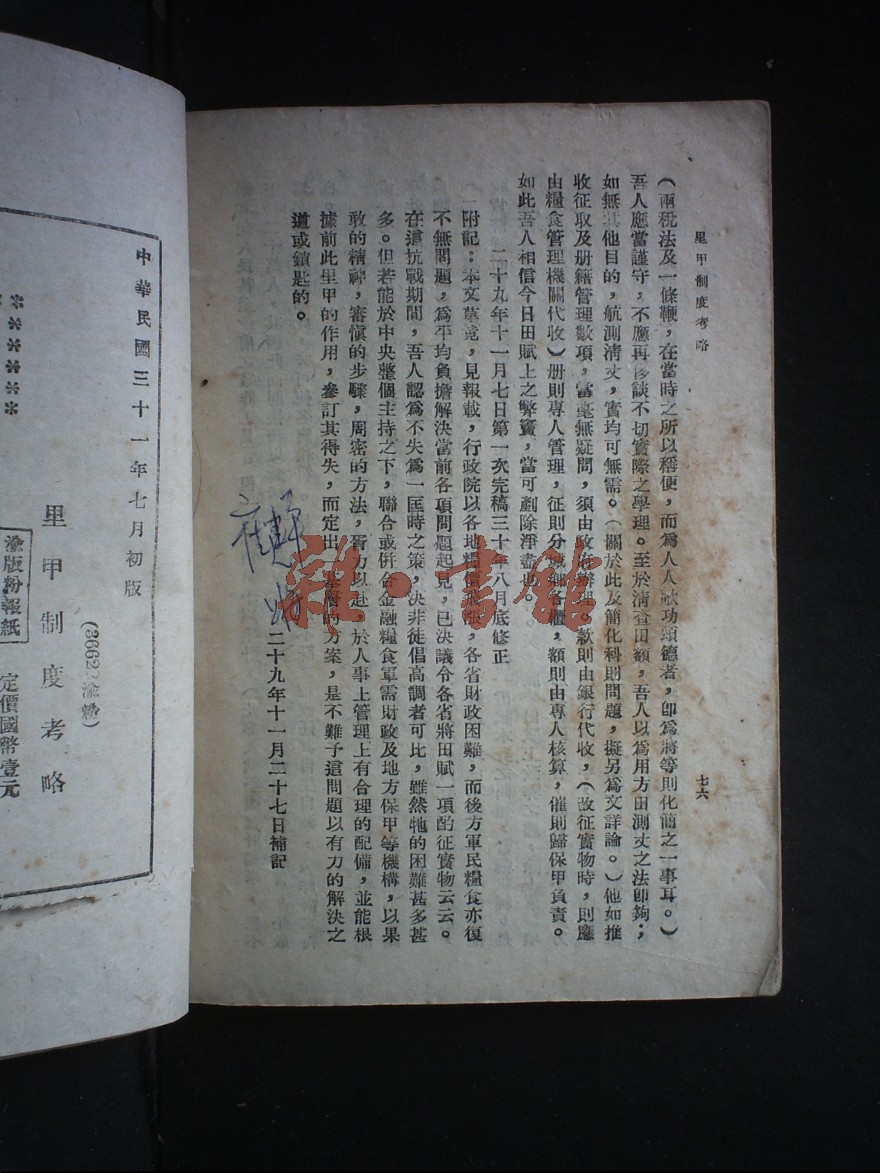 里甲制度考略
七六
(兩稅法及一條鞭,在當時之所以稱便,而爲人人歌功頌德者,卽爲將等則化簡之一事耳。)
吾人應當謹守,不應再侈談不切實際之學理。至於清查田額,吾人以爲用方田測丈之法卽夠;
如無其他目的,航測清丈,實均可無需。(關於此及簡化科則問題,擬另爲文詳論。)他如推
收征取及册籍管理數項,當毫無疑問,須由政府辦理。款則由銀行代收,(改征實物時,則應
由糧食管理機關代收)册則專人管理,征則分城鄉各櫃,額則由專人核算,催則歸保甲負責。
如此吾人相信今日田賦上之弊竇,當可剷除淨盡也。
二十九年十一月七日第一次完稿三十年八月底修正
(附記:本文草竟,見報載,行政院以各地糧價飛漲,各省財政困難,而後方軍民糧食亦復
不無問題,爲平均負擔解決當前各項問題起見,已決議令各省將田賦一項酌征實物云云。
在這抗戰期間,吾人認爲不失爲一匡時之策,決非徒倡高調者可比,雖然牠的困難甚多甚
多。但若能於中央整個主持之下,聯合或併合金融糧食軍需財政及地方保甲等機構,以果
敢的精神,審愼的步驟,周密的方法,胥力以赴,於人事上管理上有合理的配備,並能根
據前此里甲的作用,參訂其得失,而定出一基層的方案,是不難予這問題以有力的解決之
道或鎖匙的。
二十九年十一月二十七日補記
雜·書館
中華民國三十一年七月初版
(3662渝粉)
里甲制度考略
渝版粉報紙
定價國幣壹元